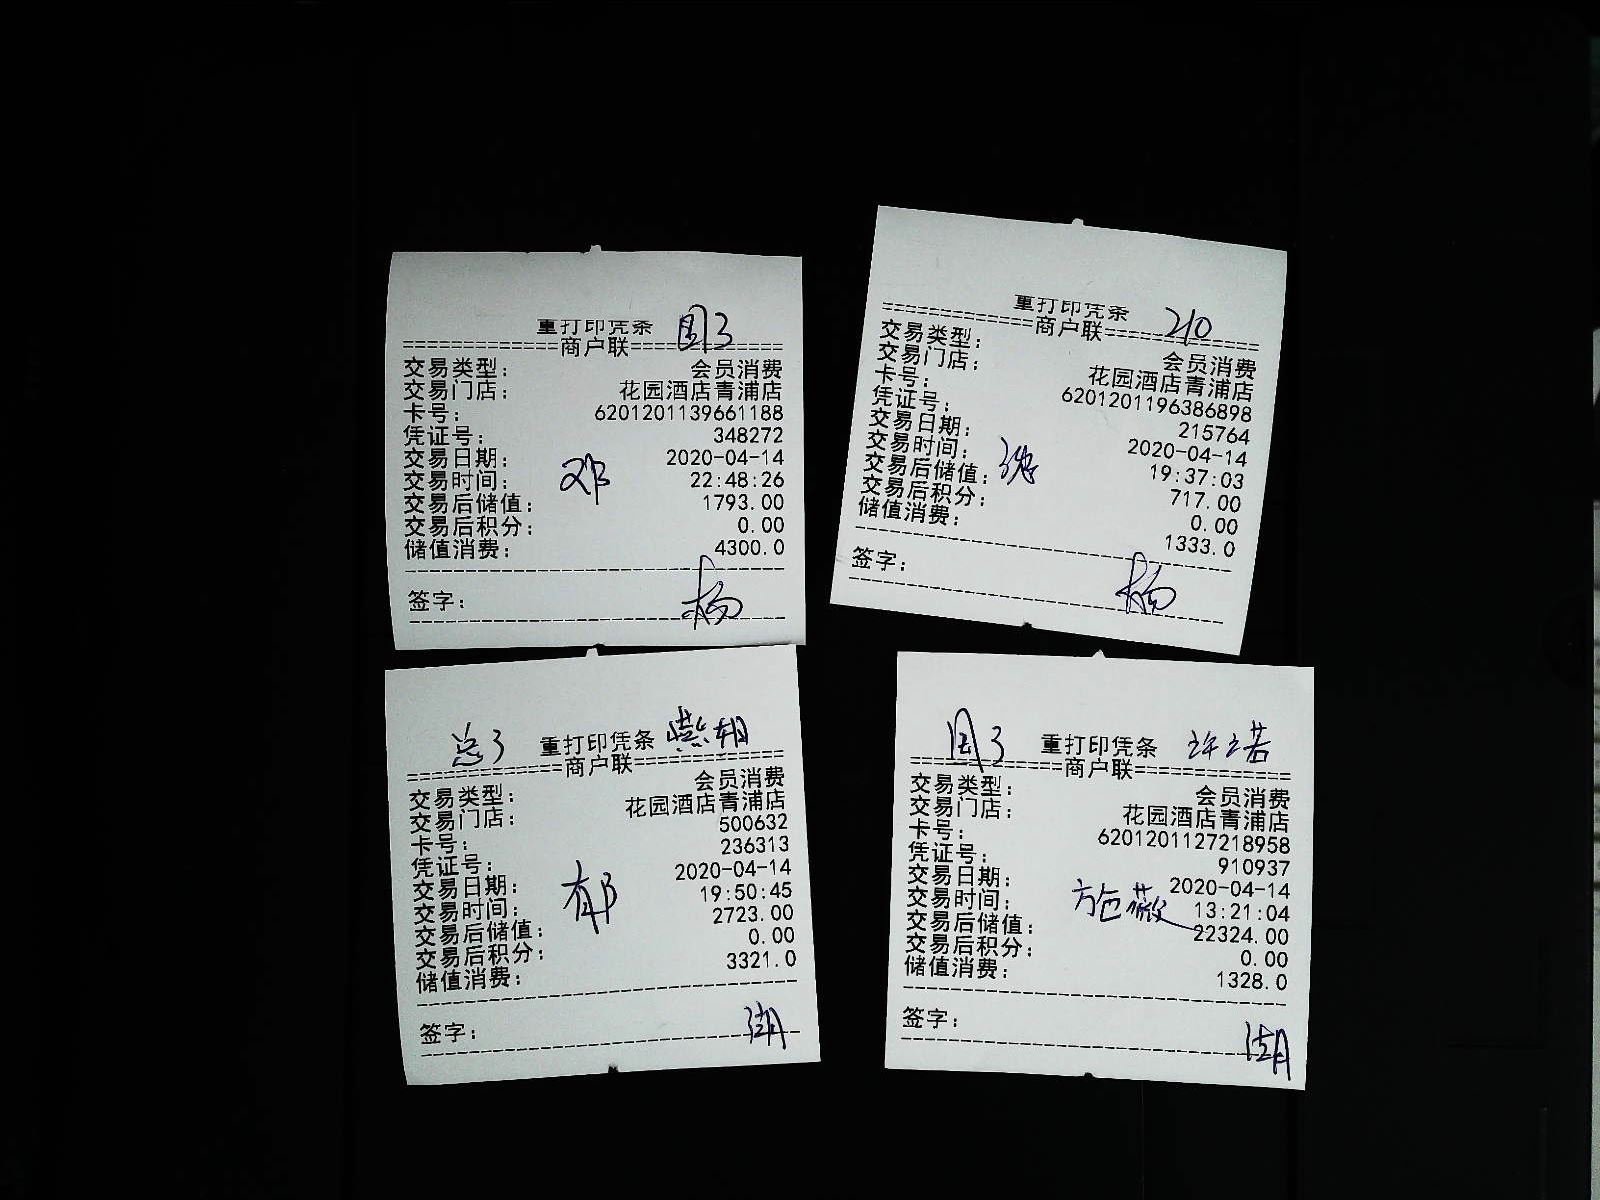 重打印凭条 国3
=============商户联=============
交易类型: 会员消费
交易门店: 花园酒店青浦店
卡号: 6201201139661188
凭证号: 348272
交易日期: 2020-04-14
交易时间: 22:48:26
邓
交易后储值: 1793.00
交易后积分: 0.00
储值消费: 4300.0
签字: 杨
重打印凭条 210
=============商户联=============
交易类型: 会员消费
交易门店: 花园酒店青浦店
卡号: 6201201196386898
凭证号: 215764
交易日期: 2020-04-14
交易时间: 19:37:03
交易后储值: 717.00
交易后积分: 0.00
储值消费: 1333.0
签字: 杨
总3 重打印凭条
=============商户联=============
交易类型: 会员消费
交易门店: 花园酒店青浦店
卡号: 500632
凭证号: 236313
交易日期: 2020-04-14
交易时间: 19:50:45
郁
交易后储值: 2723.00
交易后积分: 0.00
储值消费: 3321.0
签字:
国3 重打印凭条
=============商户联=============
交易类型: 会员消费
交易门店: 花园酒店青浦店
卡号: 6201201127218958
凭证号: 910937
交易日期: 2020-04-14
交易时间: 13:21:04
交易后储值: 22324.00
交易后积分: 0.00
储值消费: 1328.0
签字: